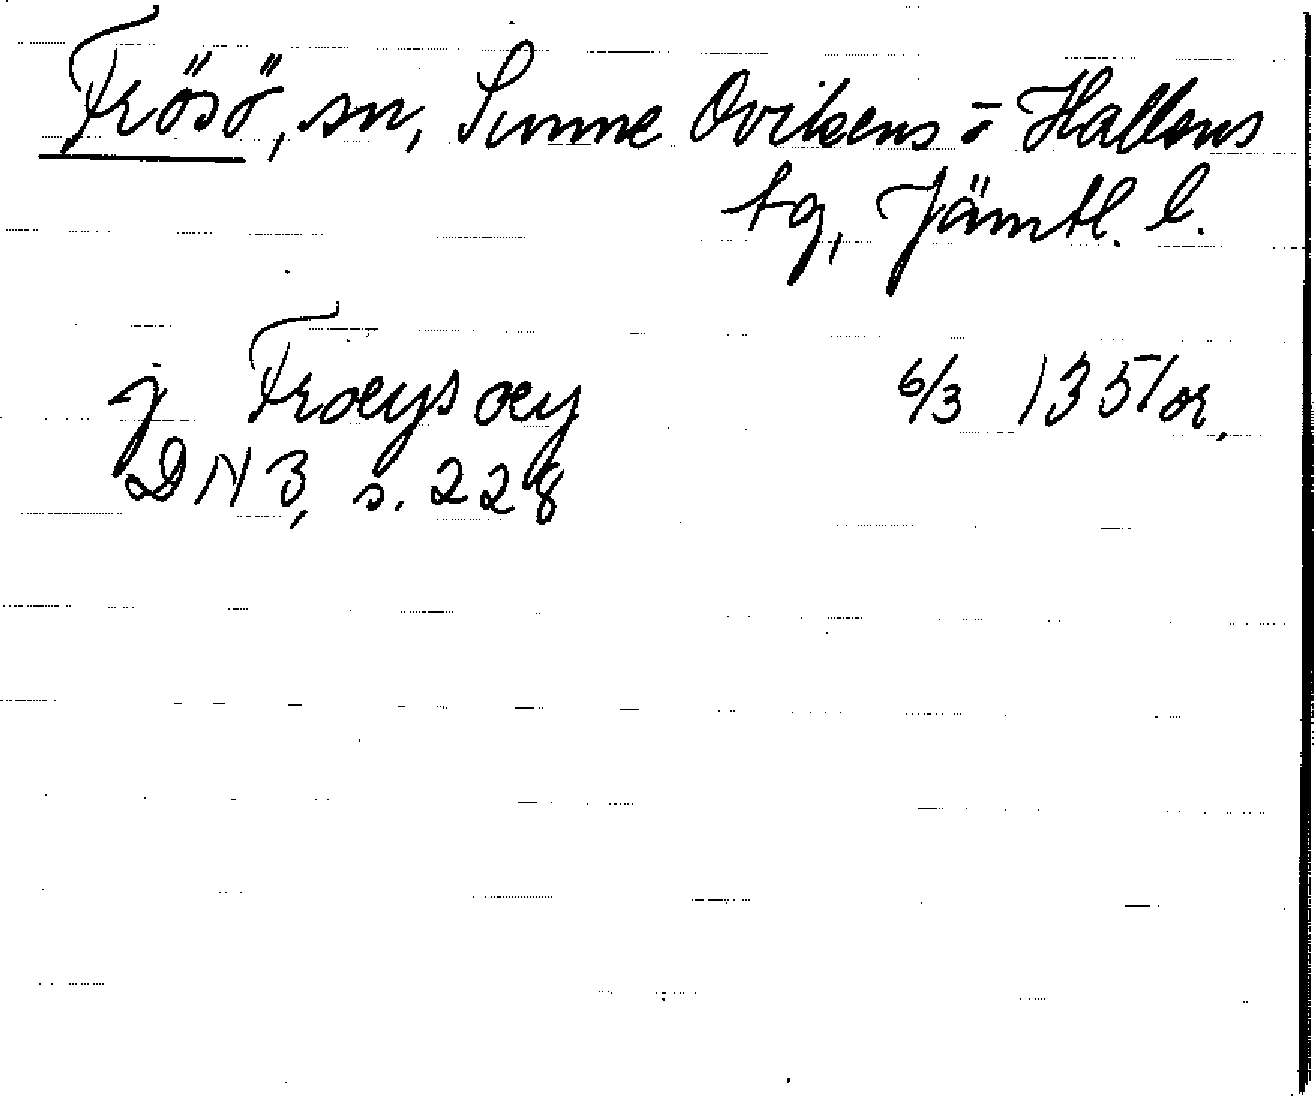 Frösö, sn, Sunne Ovikens o Hallens
tg, Jämtl. l.
j Frœysœy 6/3 1351 or,
DN 3, s. 228